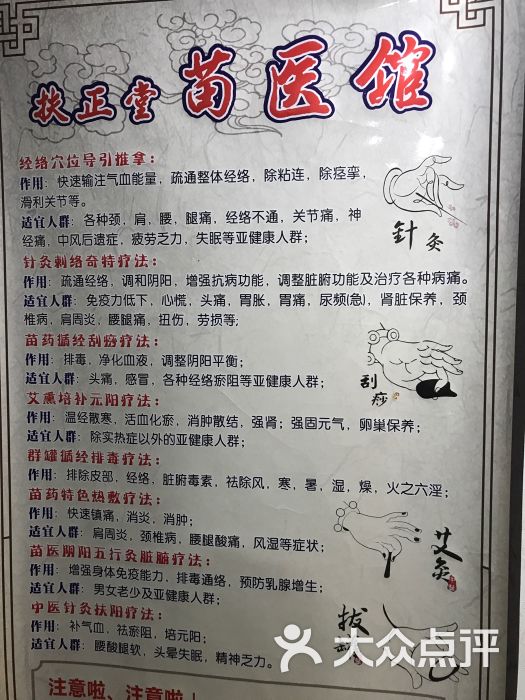 扶正堂 苗医馆
经络穴位导引推拿：
作用：快速输注气血能量，疏通整体经络，除粘连，除痉挛，
滑利关节等。
适宜人群：各种颈，肩，腰，腿痛，经络不通，关节痛，神
经痛，中风后遗症，疲劳乏力、失眠等亚健康人群；
針灸
针灸刺络奇特疗法：
作用：疏通经络，调和阴阳，增强抗病功能，调整脏腑功能及治疗各种病痛。
适宜人群：免疫力低下，心慌，头痛，胃胀，胃痛，尿频(急)，肾脏保养，颈
椎病，肩周炎，腰腿痛，扭伤，劳损等;
苗药循经刮痧疗法：
作用：排毒，净化血液，调整阴阳平衡；
适宜人群：头痛，感冒，各种经络瘀阻等亚健康人群；
刮痧
艾熏培补元阳疗法：
作用：温经散寒，活血化瘀，消肿散结，强肾；强固元气，卵巢保养；
适宜人群：除实热症以外的亚健康人群；
群罐循经排毒疗法：
作用：排除皮部，经络，脏腑毒素，祛除风，寒，暑，湿，燥，火之六淫；
苗药特色热敷疗法：
作用：快速镇痛，消炎，消肿；
适宜人群：肩周炎，颈椎病，腰腿酸痛，风湿等症状；
艾灸
苗医阴阳五行灸脏腑疗法：
作用：增强身体免疫能力，排毒通络，预防乳腺增生；
适宜人群：男女老少及亚健康人群；
中医针灸扶阳疗法：
作用：补气血，祛瘀阻，培元阳；
适宜人群：腰酸腿软，头晕失眠，精神乏力。
拔
注意啦、注意啦！
大众点评